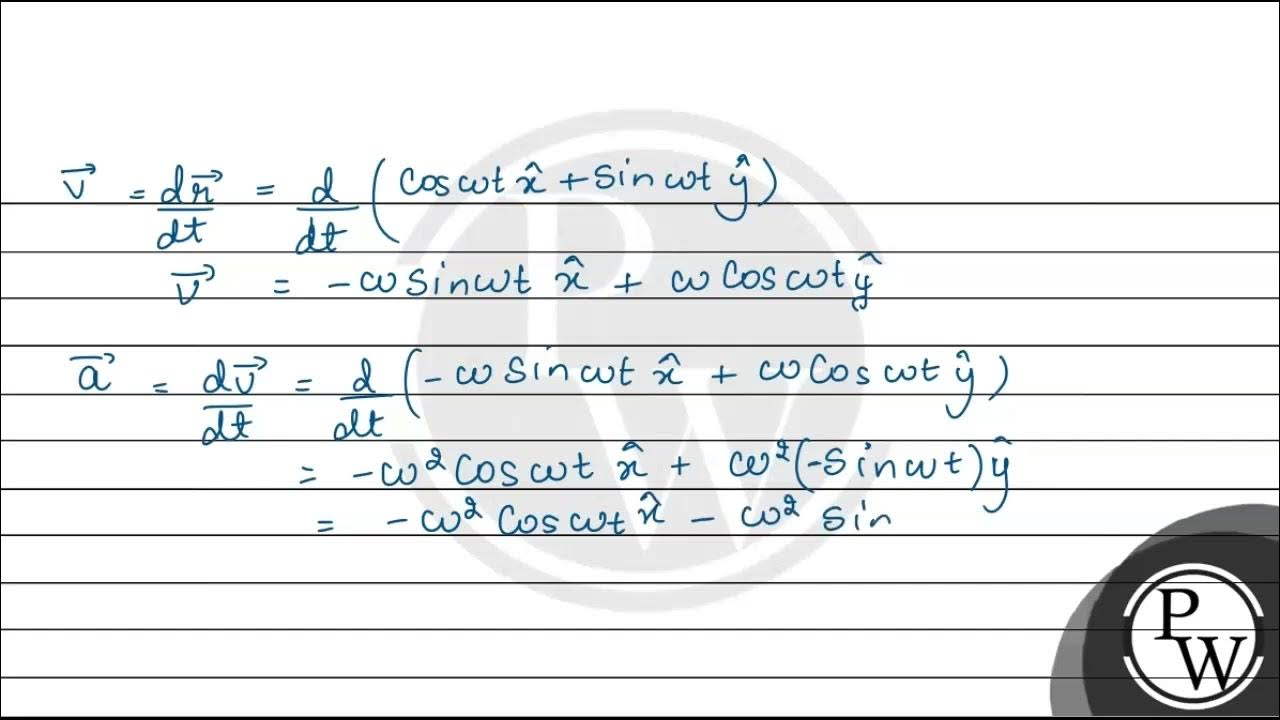 v⃗ = dr⃗/dt = d/dt (Cos ωt x̂ + Sin ωt ŷ)
v⃗ = -ω Sin ωt x̂ + ω Cos ωt ŷ
a⃗ = dv⃗/dt = d/dt (-ω Sin ωt x̂ + ω Cos ωt ŷ)
= -ω² Cos ωt x̂ + ω² (-Sin ωt) ŷ
= -ω² Cos ωt x̂ - ω² Sin
PW
PW